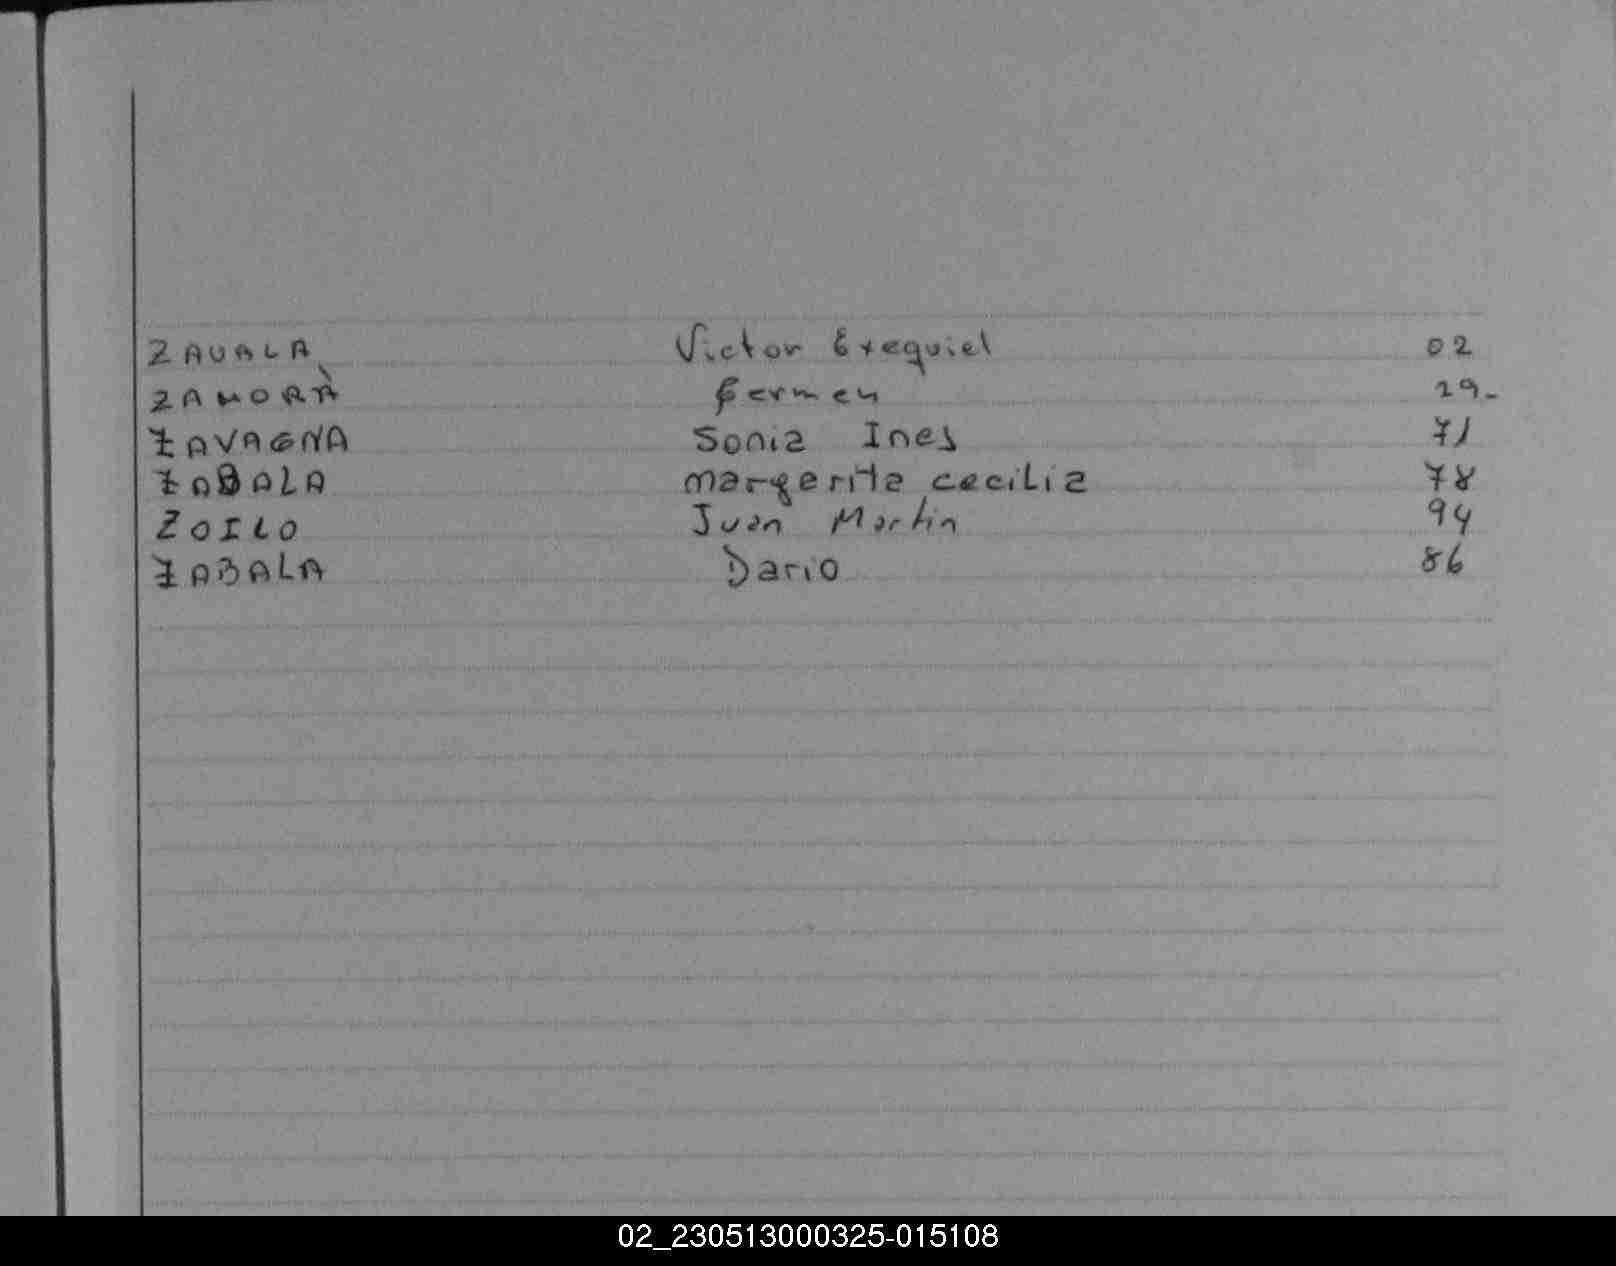 ZAVALA Victor Exequiel 02
ZAMORÀ Germen 29-
ZAVAGNA Sonia Ines 71
ZABALA margerita cecilia 78
ZOILO Juan Martin 94
ZABALA Dario 86
02_230513000325-015108